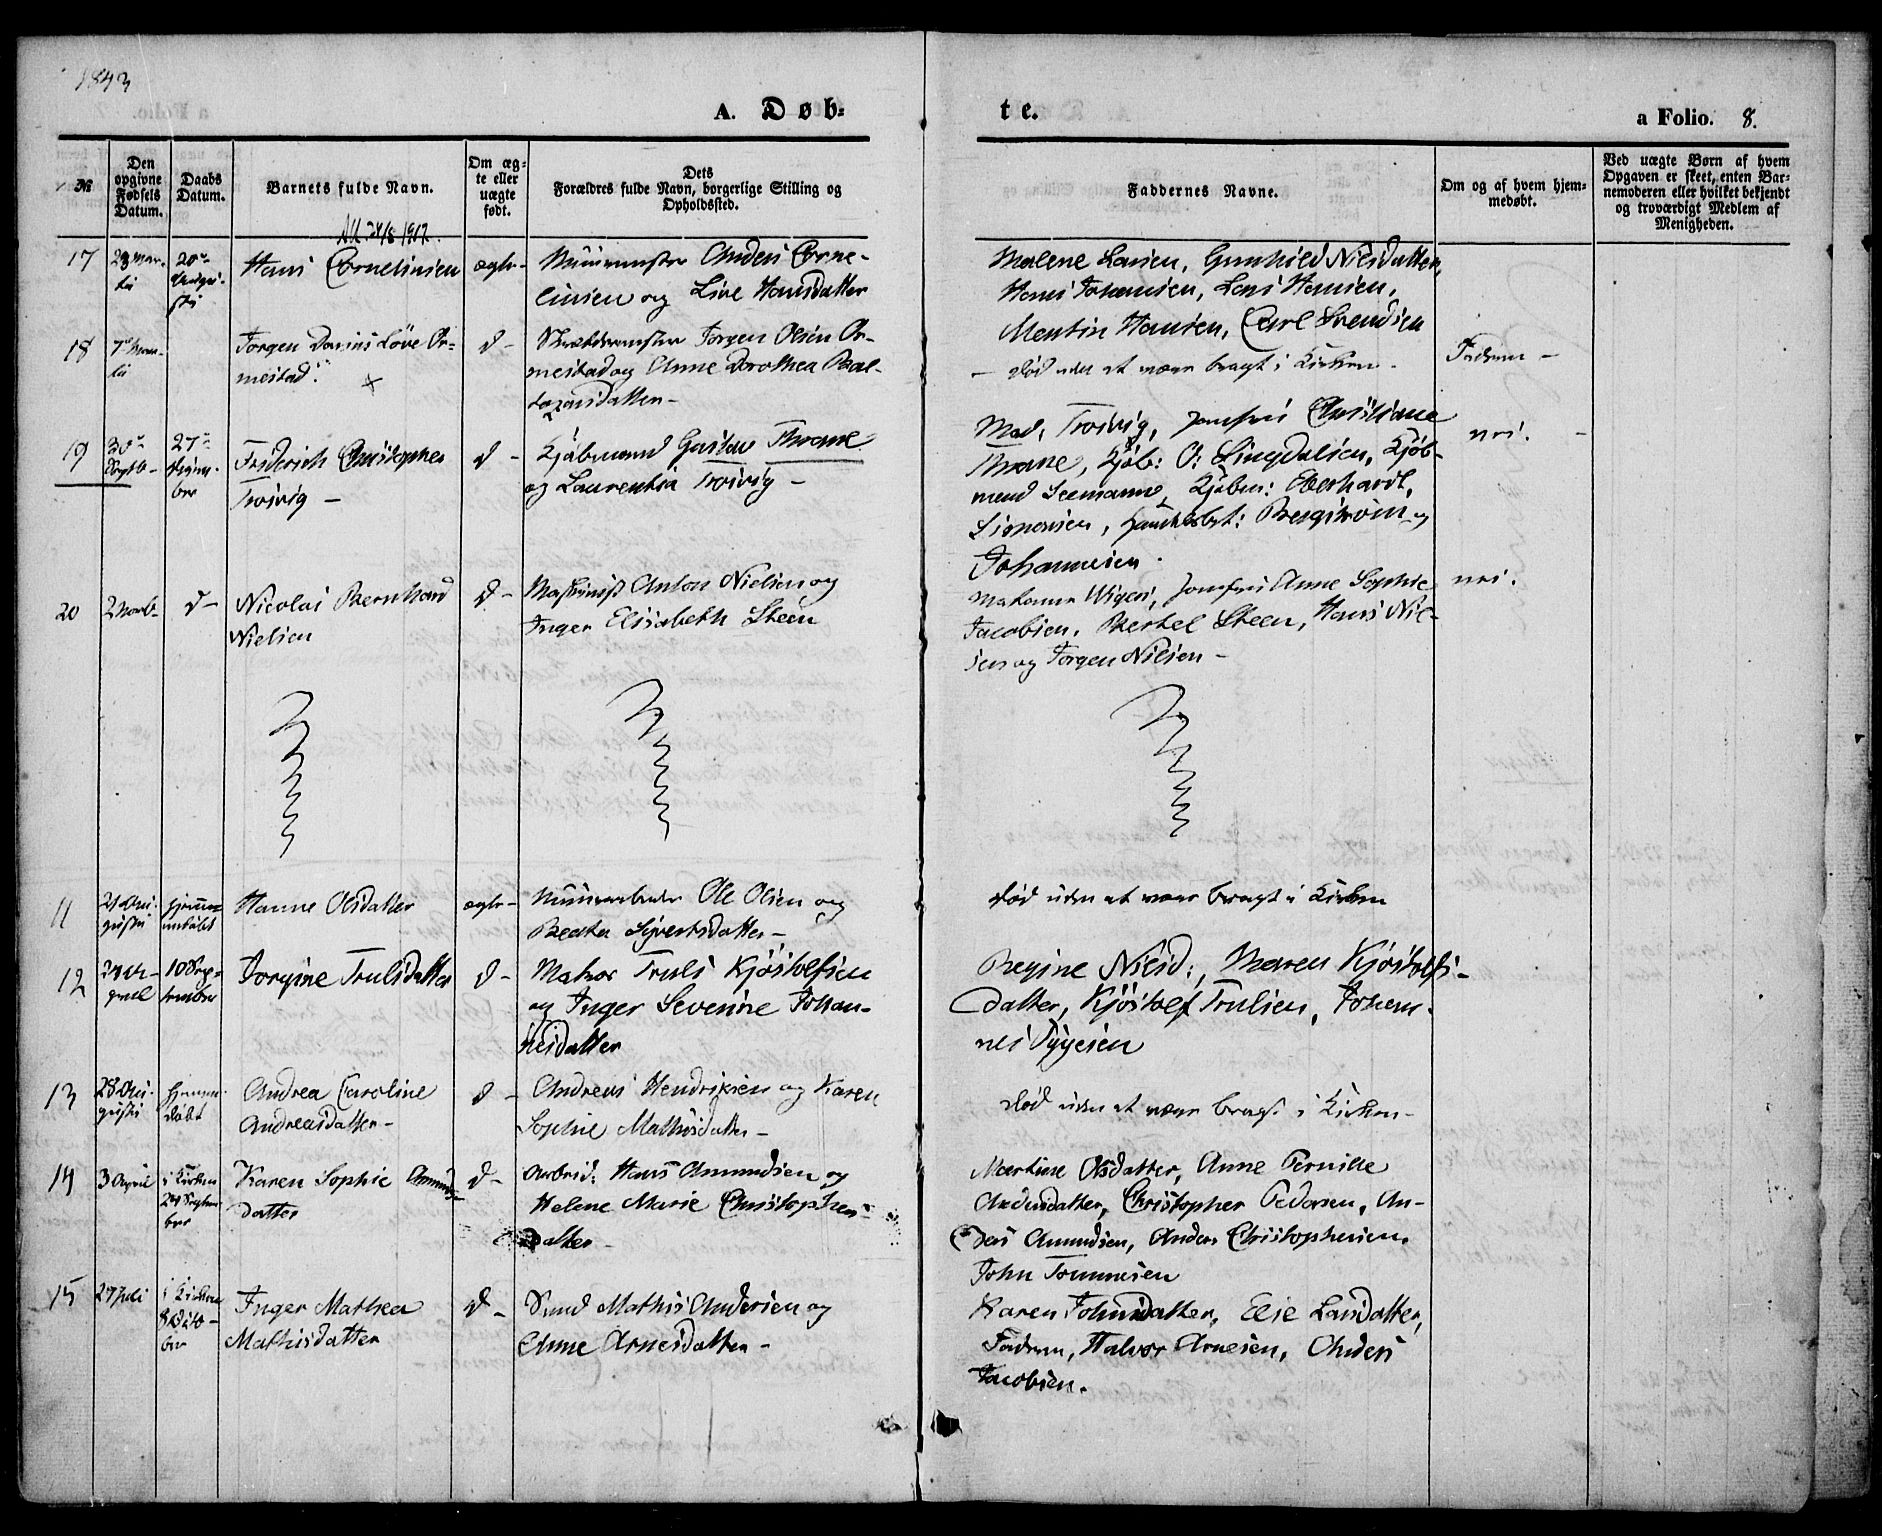 1843
A. Døb-
te.
a Folio. 8.
№
Den opgivne Fødsels Datum.
Daabs Datum.
Barnets fulde Navn.
Om æg-te eller uægte født.
Dets Forældres fulde Navn, borgerlige Stilling og Opholdssted.
Faddernes Navne.
Om og af hvem hjem-medøbt.
Ved uægte Børn af hvem Opgaven er skeet, enten Bar-nemoderen eller hvilket bekjendt og troværdigt Medlem af Menigheden.
24/8 1917.
17
Hans Cornelinsen
ægte-
Anders Corne-
linsen og Live Hansdatter
Malene Larsen, Gunhild Nilsdatter,
Hans Johansen, Lars Hansen,
Mentin Hansen, Carl Svendsen
18
Jørgen Darius Løve Or-
mestad.
d-
Jørgen Olsen Or-
mestad og Anne Dorothea Bal-
død uden at være bragt i Kirken.
Faderen -
19
27de
Friderich Christopher
Troivig -
d -
Kjøbmand Gustav Thrane
og Laurentia Troivig -
Mad. Troivig, Jomfru Christiane
Thrane, Kjøb: O: Lingdalsen, Kjøb-
mand Seemann, Kjøbm: Eberhardt,
Simonsen, Bergstrøm og
Johannesen.
nei.
20
2 Novb-
d-
Nicolai Bernhard
Nielsen
d-
Maskinist Anton Nielsen og
Inger Elisabeth Steen
Madame Wiger, Jomfru Anne Sophie
Jacobsen, Bertel Steen, Hans Nil-
sen og Jørgen Nilsen -
nei.
11
Hanne Olsdatter
ægte-
Ole Olsen og
Beata Sivertsdatter -
død uden at være bragt i Kirken
12
10 Sep-
tember
Jorgine Trulsdatter
d-
Matros Truls Kjøstolfsen
og Inger Severine Johan-
nesdatter
Regine Nilsd:, Maren Kjøstolfs-
datter, Kjøstolf Trulsen, Johan-
nes Tygesen
13
28 Au-
gusti
hjemme-
døbt
Andrea Caroline
Andreasdatter -
d -
Andreas Hendriksen og Karen
Sophie Mathisdatter -
død uden at være bragt i Kirken -
14
3 April
i Kirken
24 Septem-
ber
Karen Sophie Amunds-
datter
d-
Arbeid: Hans Amundsen og
Helene Marie Christophers-
datter -
Martine Olsdatter, Anne Pernille
Andersdatter, Christopher Pedersen, An-
ders Amundsen, Anders Christophersen,
John Tommesen
15
27 Juli
i Kirken
8 Octo-
ber
Inger Mathea
Mathisdatter
d -
Mathis Andersen og
Anne Arnesdatter -
Karen Johnsdatter, Else Larsdatter,
Faderen, Halvor Arnesen, Anders
Jacobsen.